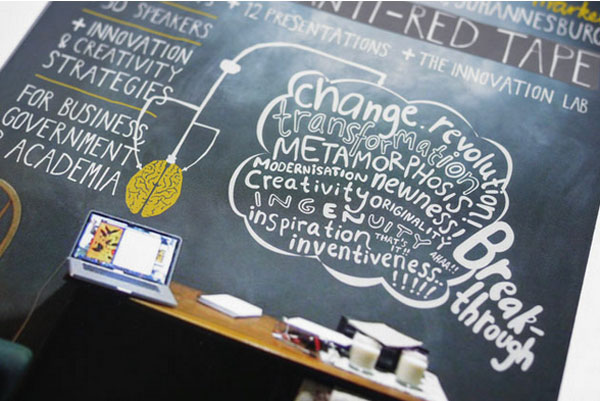 30 SPEAKERS
+ INNOVATION
& CREATIVITY
STRATEGIES
FOR BUSINESS,
GOVERNMENT
ACADEMIA
+ 12 PRESENTATIONS + THE INNOVATION LAB
ANTI-RED TAPE
JOHANNESBURG
change. revolution!
transformation
METAMORPHOSIS!
MODERNISATION newness!
Creativity ORIGINALITY
INGENUITY AHAA!!
inspiration THAT'S IT!!
inventiveness
!!!!!
Break-
through